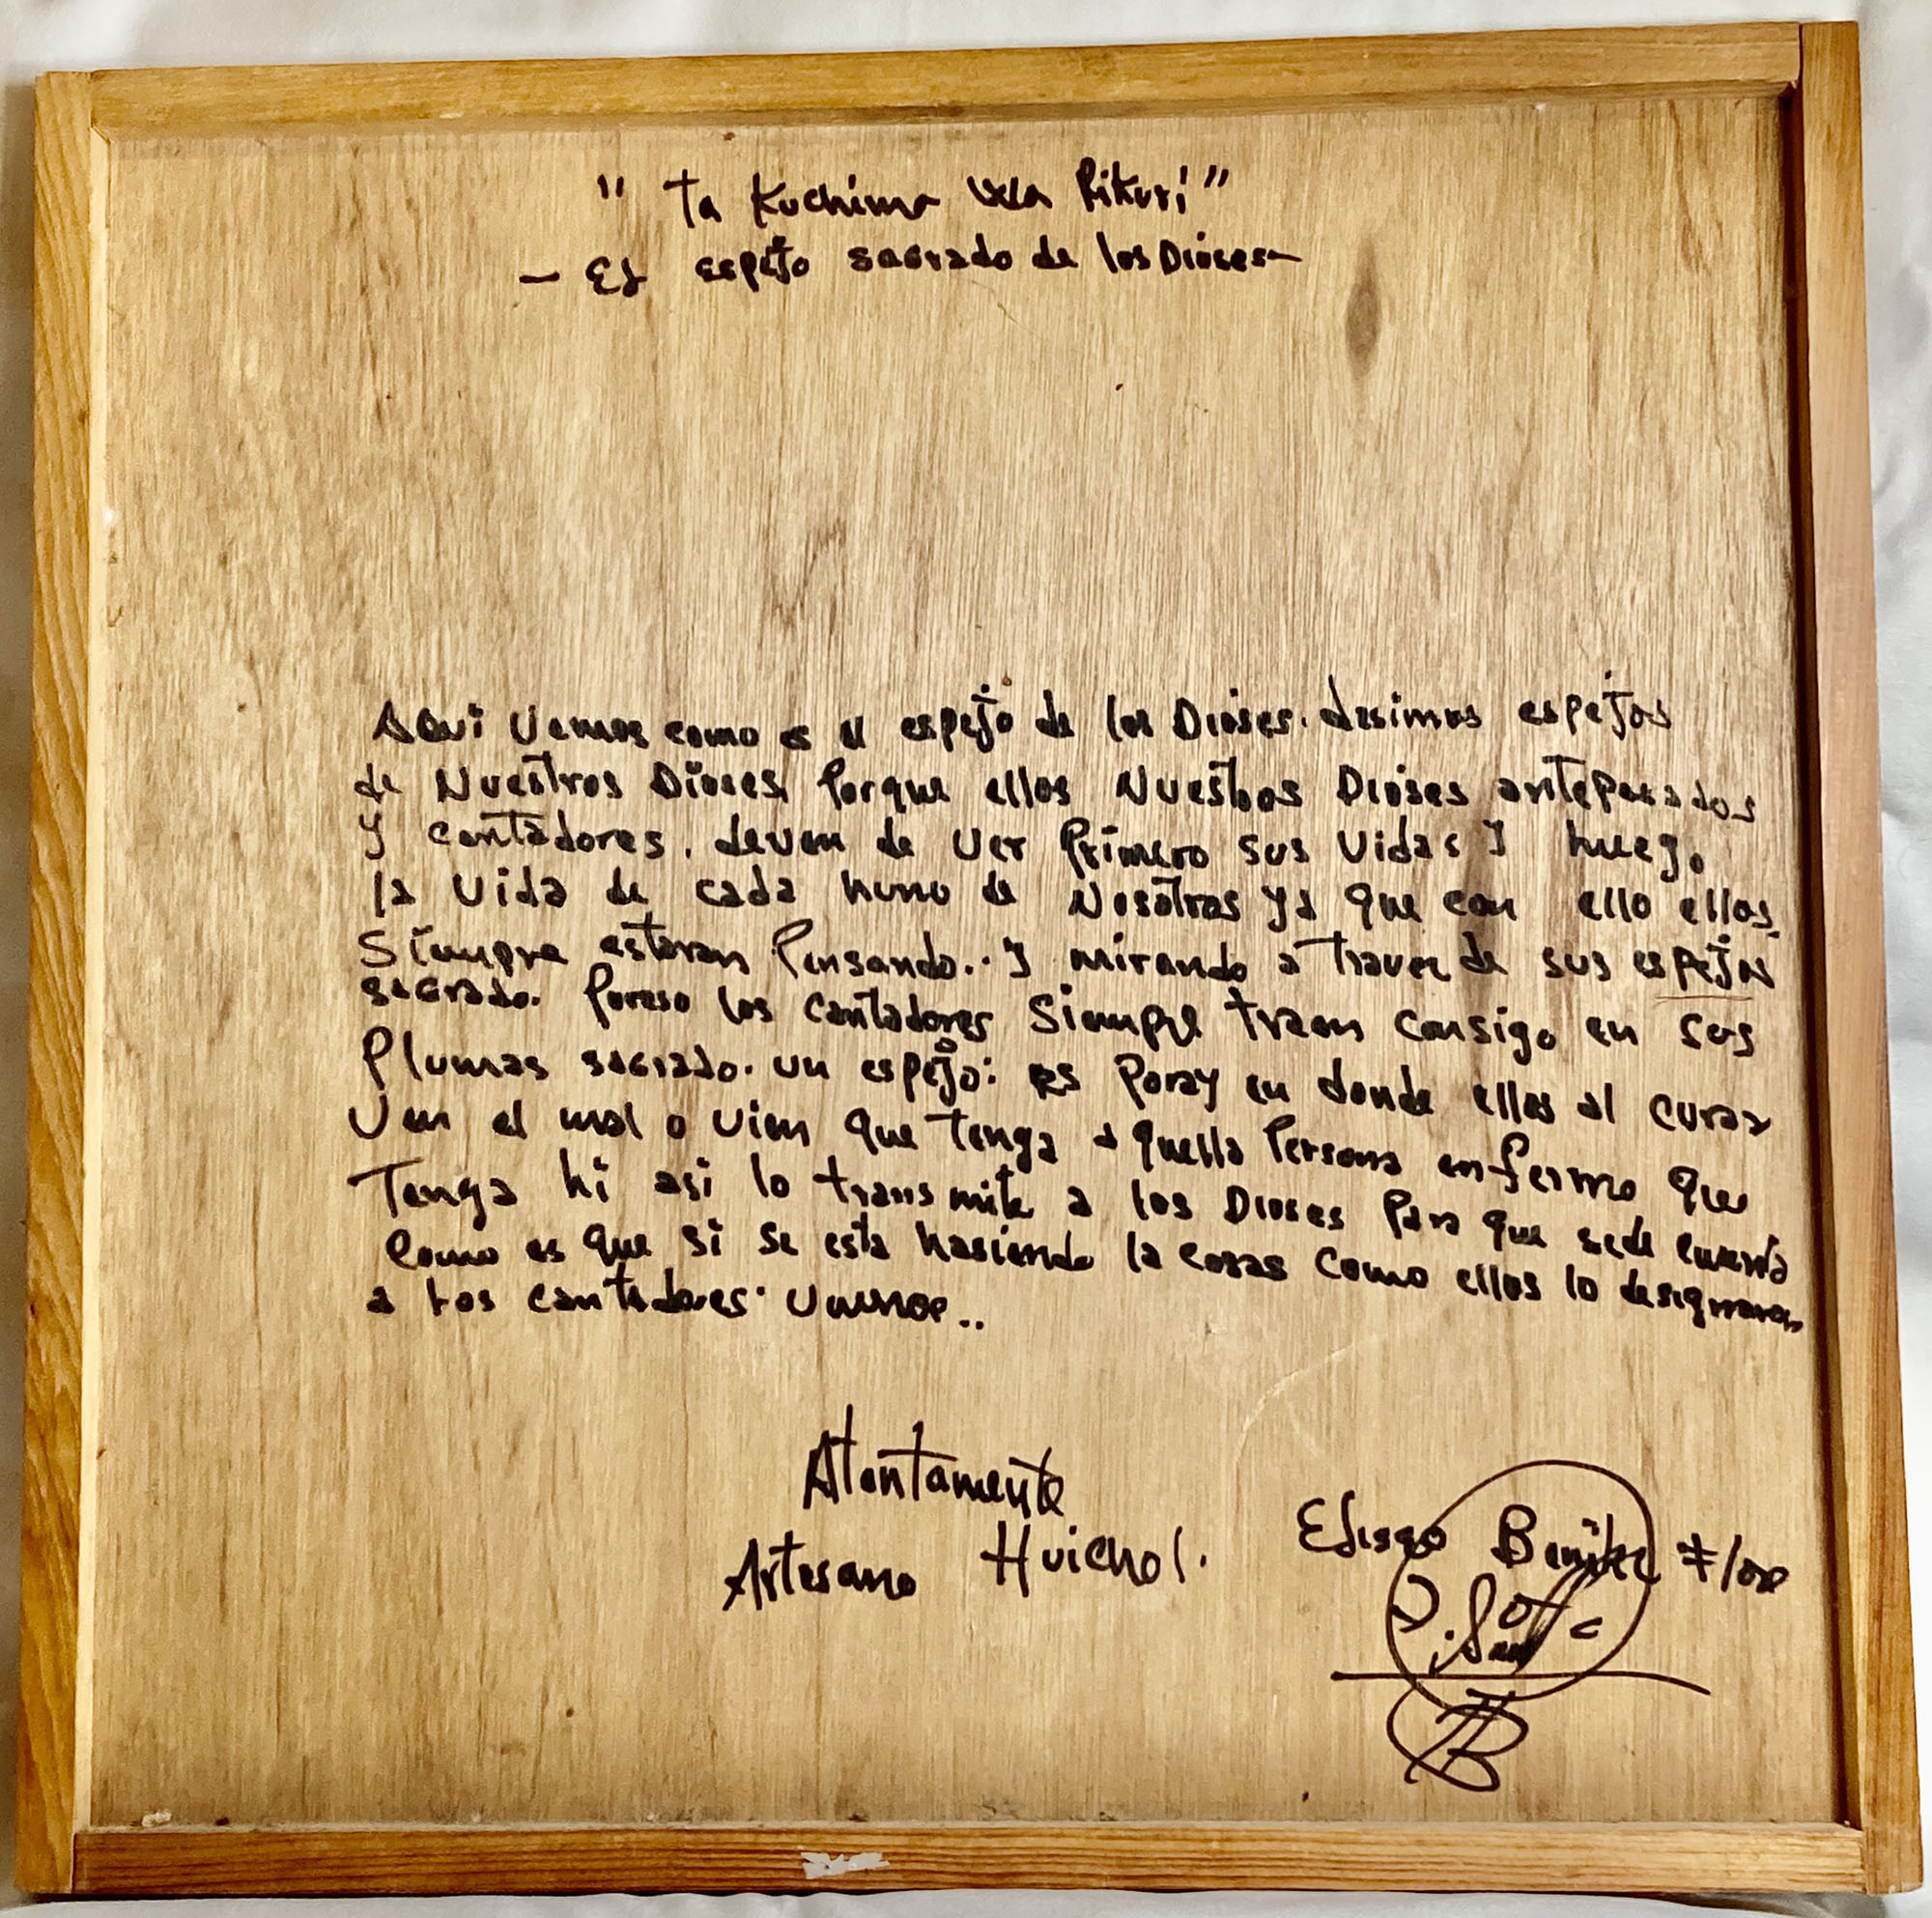 " Ta Kuchima Pikuri"
- El espejo sagrado de los Dioses -
Aqui Vemos como es el espejo de los Dioses. desimos espejos
de Nuestros Dioses, Porque ellos Nuestros Dioses antepasados
Y cantadores. deven de Ver Primero sus Vidas Y huego
la Vida de cada huno de Nosotros Ya que con ello ellos.
Siempre estaran Pensando.. Y mirando a traves de sus espejos
sagrado. Poreso los Cantadores Siempre traen Consigo en sus
Plumas sagrado. un espejo: es Poray en donde ellos al curar
Ven el mal o vien que tenga aquella Persona enfermo que
Tenga hi asi lo transmite a los Dioses Para que sede cuenta
Como es que si se esta hasiendo la cosas como ellos lo designaron
a los cantadores. Vemos..
Atentamente
Artesano Huichol.
Eliseo Benitez Flores